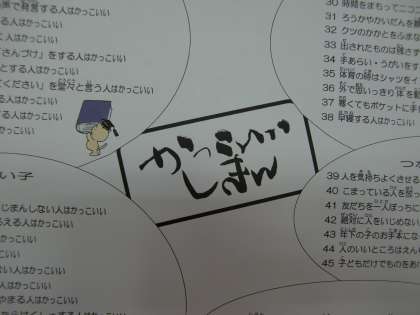 葉で発言する人はかっこいい
人はかっこいい
「さんづけ」をする人はかっこいい
とする人はかっこいい
ください」を堂々と言う人はかっこいい
る人はかっこいい
する人はかっこいい
かっこいい
30 時間をまもってニコニコ
31 ろうかやかいだんを静
32 クツのかかとをふまな
33 出されたものは残さず
34 手あらい・うがいをす
35 体育の時はシャツをイ
36 外で思いっきり体を動
37 寒くてもポケットに手を
38 早寝する人はかっこい
かっこいい
しきん
い子
じまんしない人はかっこいい
らえる人はかっこいい
る人はかっこいい
かっこいい
ない人はかっこいい
る人はかっこいい
やまる人はかっこいい
39 人を気持ちよくさせる
40 こまっている人を救っ
41 友だちを一人ぼっちに
42 絶対に人をいじめない
43 年下の子のお手本にな
44 人のいいところはえん
45 子どもだけでものをお